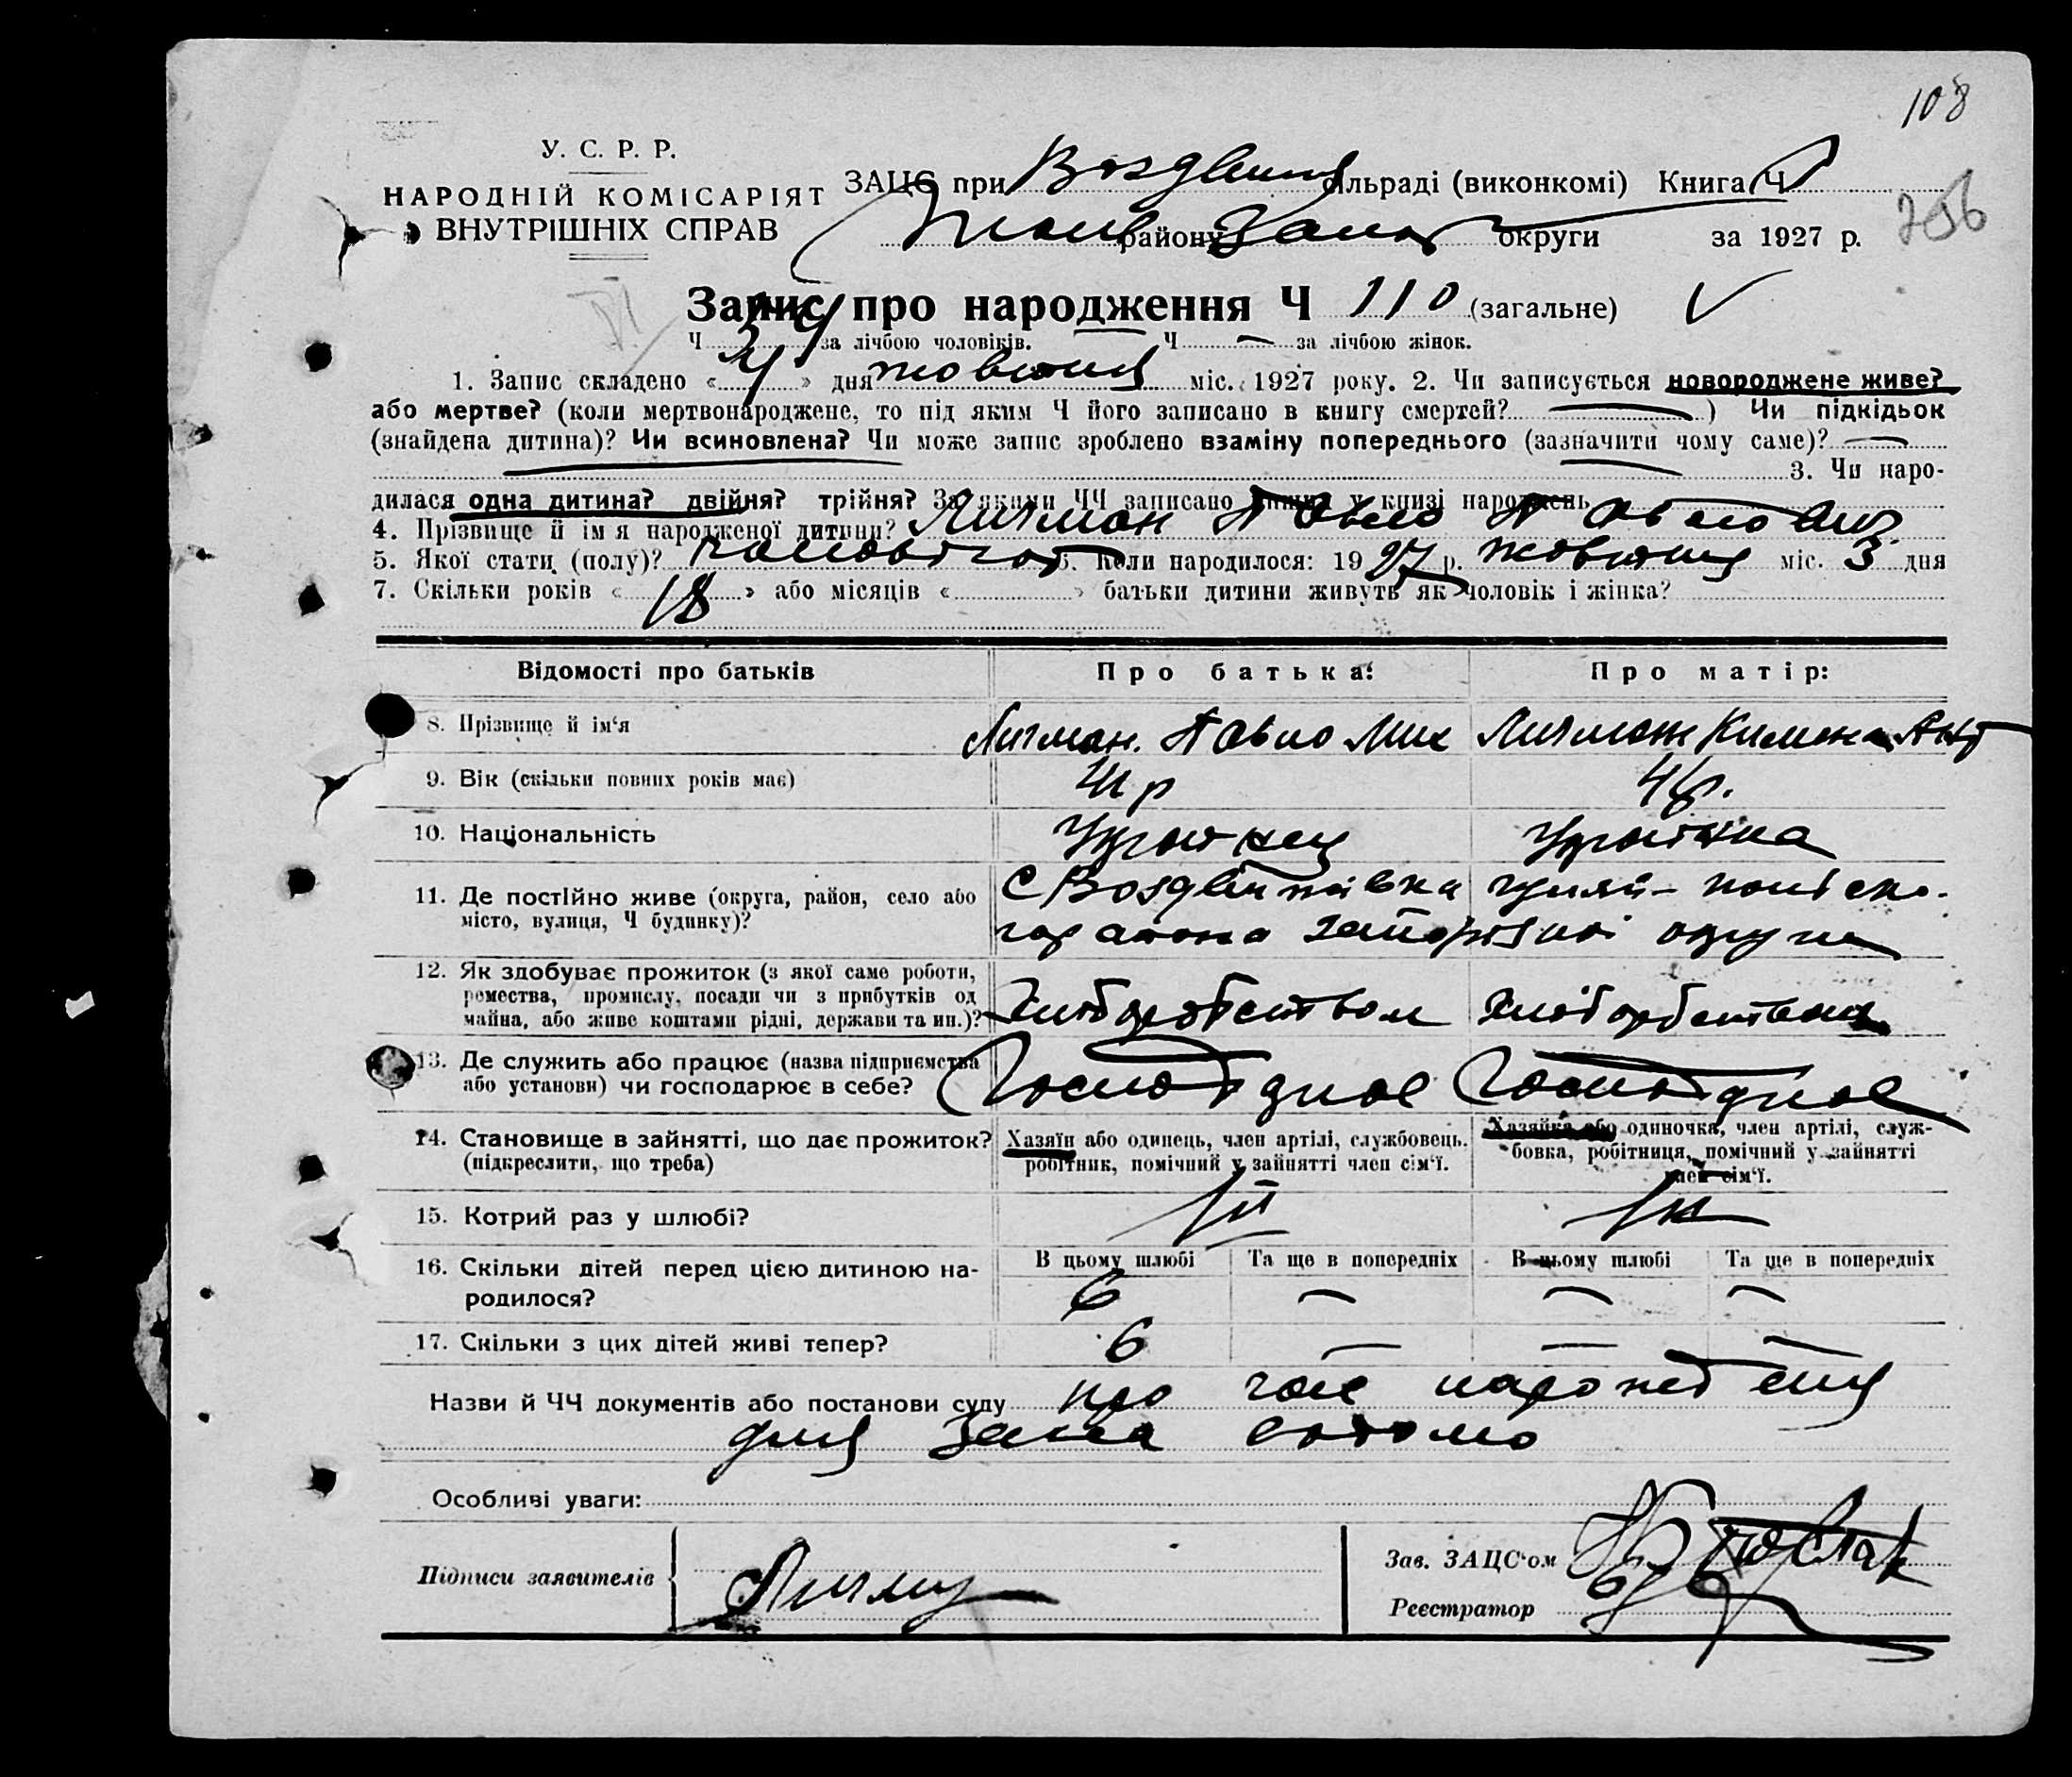 108
У. С. Р. Р.
НАРОДНІЙ КОМІСАРІЯТ
ВНУТРІШНІХ СПРАВ
ЗАЦС при сільраді (виконкомі) Книга Ч
району Запор округи за 1927 р.
Запис про народження Ч 110 (загальне)
Ч за лічбою чоловіків. Ч — за лічбою жінок.
1. Запис складено « 4 » дня жовтня міс. 1927 року. 2. Чи записується новороджене живе?
або мертве? (коли мертвонароджене, то під яким Ч його записано в книгу смертей? — ) Чи підкідьок
(знайдена дитина)? Чи всиновлена? Чи може запис зроблено взаміну попереднього (зазначити чому саме)? —
3. Чи наро-
дилася одна дитина? двійня? трійня? За якими ЧЧ записано у книзі народжень
4. Прізвище й ім'я народженої дитини? Личман Павло Павлович
5. Якої стати (полу)? 6. Коли народилося: 1927 р. жовтня міс. 3 дня
7. Скільки років « 18 » або місяців « » батьки дитини живуть як чоловік і жінка?
Відомості про батьків Про батька: Про матір:
8. Прізвище й ім'я Личман Павло Мих Личман Ант
9. Вік (скільки повних років має) 41 р
10. Національність Українец Українка
11. Де постійно живе (округа, район, село або
місто, вулиця, Ч будинку)?
С Воздвіжівка Гуляй-Польско-
го району Запорізької округи
12. Як здобуває прожиток (з якої саме роботи,
ремества, промислу, посади чи з прибутків од
майна, або живе коштами рідні, держави та ин.)?
Хліборобством Хліборобством
13. Де служить або працює (назва підприємства
або установи) чи господарює в себе?
14. Становище в зайнятті, що дає прожиток?
(підкреслити, що треба)
Хазяїн або одинець, член артілі, службовець.
робітник, помічний у зайнятті член сім'ї.
Хазяйка або одиночка, член артілі, служ-
бовка, робітниця, помічний у зайнятті
член сім'ї.
15. Котрий раз у шлюбі?
16. Скільки дітей перед цією дитиною на-
родилося?
В цьому шлюбі Та ще в попередніх В цьому шлюбі Та ще в попередніх
6 — — —
17. Скільки з цих дітей живі тепер? 6 — — —
Назви й ЧЧ документів або постанови суду про
для
Особливі уваги:
Підписи заявителів
Зав. ЗАЦС'ом
Реєстратор